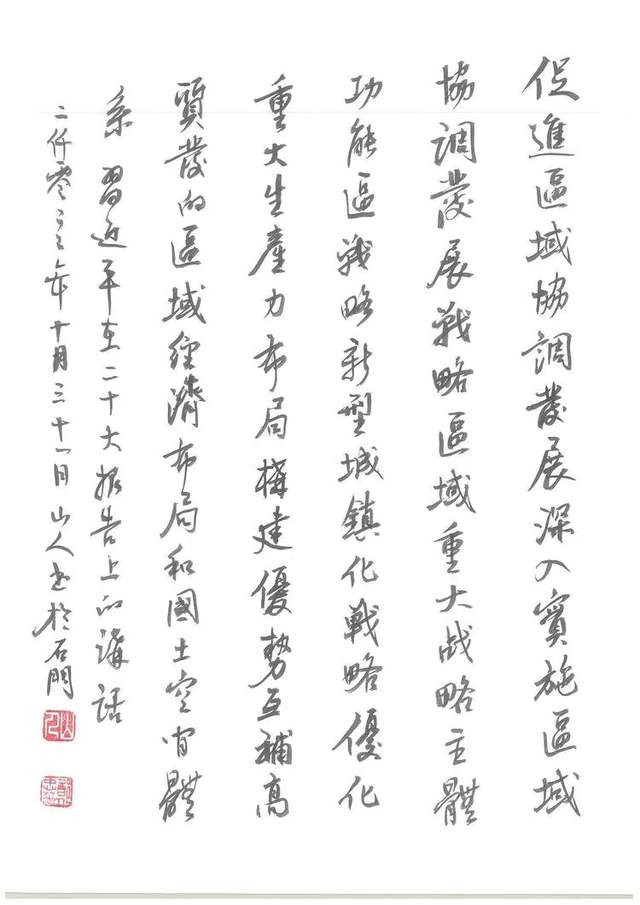 促進區域協調發展深入實施區域
協調發展戰略區域重大战略主體
功能區戰略新型城鎮化戰略優化
重大生產力布局構建優勢互補高
質發的區域經濟布局和國土空间體
系 習近平在二十大报告上的講話
二仟零二二年十月三十一日山人书於石門
山人